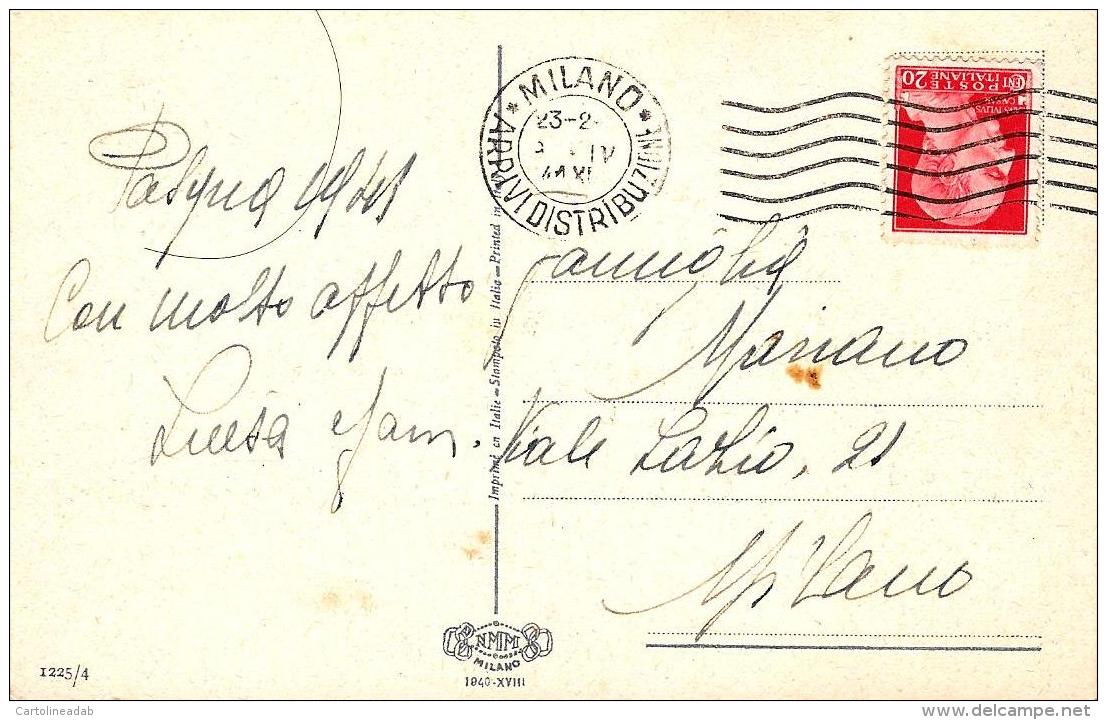 Pasqua 1941
Con molto affetto
Luisa
Famiglia
Mariano
Viale Lazio, 21
Milano
*MILANO*
ARRIVI DISTRIBUZIONI
23-2
IV
41 XI
CENT 20
POSTE
ITALIANE
Imprimé en Italie - Stampato in Italia - Printed in
NMM
MILANO
1940-XVIII
1225/4
© Cartolineadab
delcampe.net